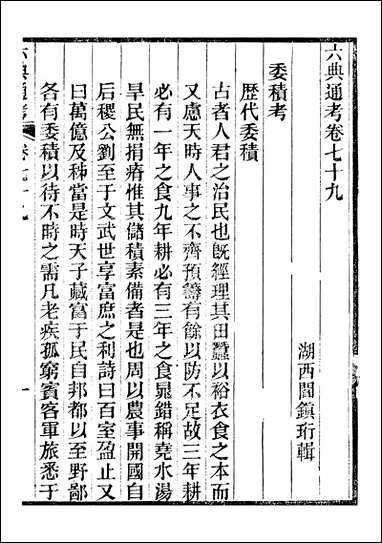 六典通考卷七十九
湖西閻鎮珩輯
委積考
歷代委積
古者人君之治民也既經理其田蠶以裕衣食之本而
又慮天時人事之不齊預籌有餘以防不足故三年耕
必有一年之食九年耕必有三年之食鼂錯稱堯水湯
旱民無捐瘠惟其儲積素備者是也周以農事開國自
后稷公劉至于文武世享富庶之利詩曰百室盈止又
曰萬億及秭當是時天子藏富于民自邦都以至野鄙
各有委積以待不時之需凡老疾孤窮賓客軍旅悉于
六典通考
卷七十九
一